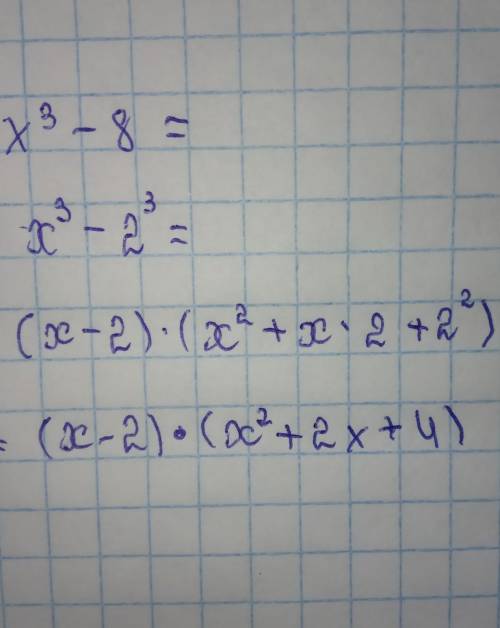 x³ - 8 =
x³ - 2³ =
(x - 2) · (x² + x · 2 + 2²)
= (x - 2) · (x² + 2x + 4)